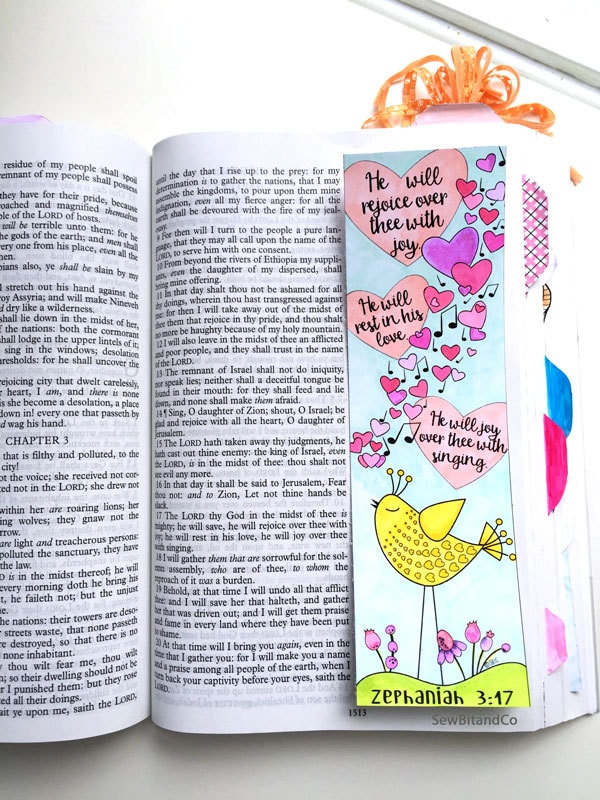 residue of my people shall spoil
remnant of my people shall possess
they have for their pride, because
reproached and magnified themselves
people of the LORD of hosts.
will be terrible unto them: for he
the gods of the earth; and men shall
every one from his place, even all the
then.
opians also, ye shall be slain by my
ill stretch out his hand against the
roy Assyria; and will make Nineveh
nd dry like a wilderness.
shall lie down in the midst of her,
f the nations: both the cormorant
shall lodge in the upper lintels of it;
sing in the windows; desolation
thresholds: for he shall uncover the
rejoicing city that dwelt carelessly,
r heart, I am, and there is none
is she become a desolation, a place
down in! every one that passeth by
nd wag his hand.
CHAPTER 3
that is filthy and polluted, to the
city!
not the voice; she received not cor-
ted not in the LORD; she drew not
within her are roaring lions; her
ing wolves; they gnaw not the
row.
are light and treacherous persons:
polluted the sanctuary, they have
the law.
D is in the midst thereof; he will
every morning doth he bring his
he faileth not; but the unjust
me.
he nations: their towers are deso-
r streets waste, that none passeth
re destroyed, so that there is no
none inhabitant.
y thou wilt fear me, thou wilt
n; so their dwelling should not be
r I punished them: but they rose
ed all their doings.
ait ye upon me, saith the LORD,
until the day that I rise up to the prey: for my
determination is to gather the nations, that I may
assemble the kingdoms, to pour upon them mine
indignation, even all my fierce anger: for all the
earth shall be devoured with the fire of my jeal-
ousy.
9 For then will I turn to the people a pure lan-
guage, that they may all call upon the name of the
LORD, to serve him with one consent.
10 From beyond the rivers of Ethiopia my suppli-
ants, even the daughter of my dispersed, shall
bring mine offering.
11 In that day shalt thou not be ashamed for all
thy doings, wherein thou hast transgressed against
me: for then I will take away out of the midst of
thee them that rejoice in thy pride, and thou shalt
no more be haughty because of my holy mountain.
12 I will also leave in the midst of thee an afflicted
and poor people, and they shall trust in the name
of the LORD.
13 The remnant of Israel shall not do iniquity,
nor speak lies; neither shall a deceitful tongue be
found in their mouth: for they shall feed and lie
down, and none shall make them afraid.
14 ¶ Sing, O daughter of Zion; shout, O Israel; be
glad and rejoice with all the heart, O daughter of
Jerusalem.
15 The LORD hath taken away thy judgments, he
hath cast out thine enemy: the king of Israel, even
the LORD, is in the midst of thee: thou shalt not
see evil any more.
16 In that day it shall be said to Jerusalem, Fear
thou not: and to Zion, Let not thine hands be
slack.
17 The LORD thy God in the midst of thee is
mighty; he will save, he will rejoice over thee with
joy; he will rest in his love, he will joy over thee
with singing.
18 I will gather them that are sorrowful for the sol-
emn assembly, who are of thee, to whom the
reproach of it was a burden.
19 Behold, at that time I will undo all that afflict
thee: and I will save her that halteth, and gather
her that was driven out; and I will get them praise
and fame in every land where they have been put
to shame.
20 At that time will I bring you again, even in the
time that I gather you: for I will make you a name
and a praise among all people of the earth, when I
turn back your captivity before your eyes, saith the
LORD.
1513
He will
rejoice over
thee with
joy.
He will
rest in his
love.
He will joy
over thee with
singing.
zephaniah 3:17
SewBitandCo